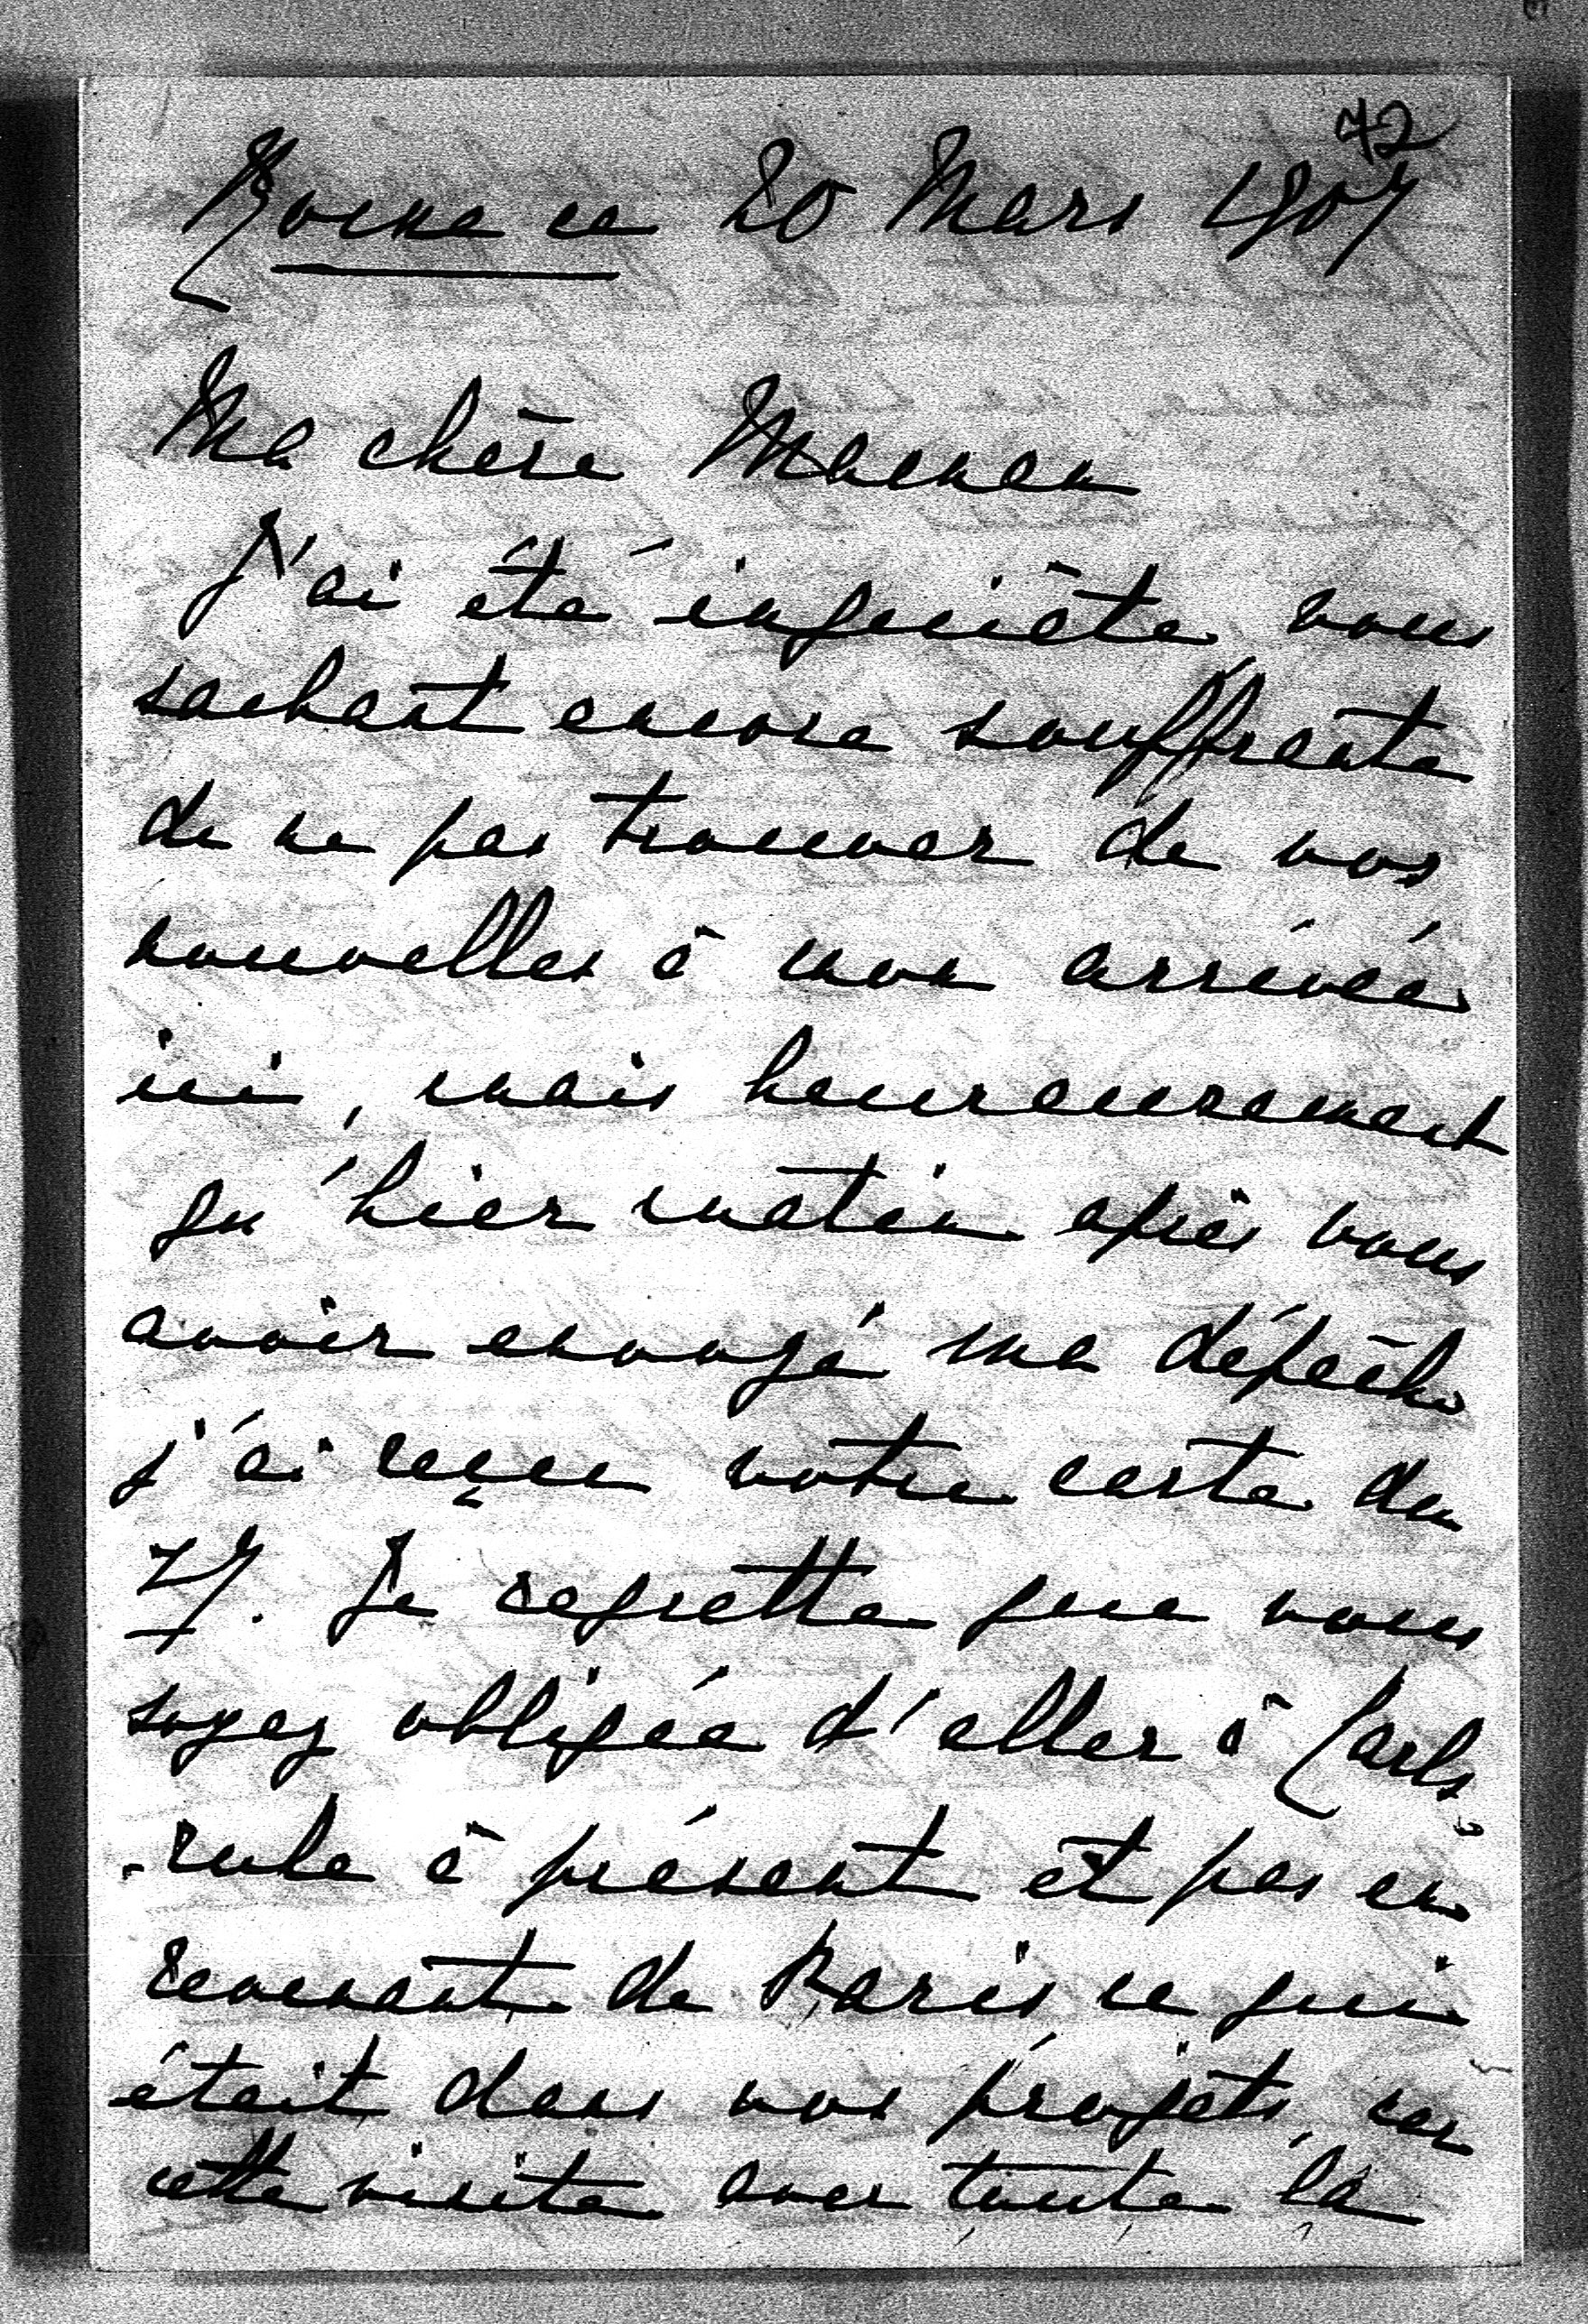 42
Rome ce 20 Mars 1907
Ma chère Maman
J'ai été inquiète vous
sachant encore souffrante
de ne pas trouver de vos
nouvelles à mon arrivée
ici, mais heureusement
qu'hier matin après vous
avoir envoyé ma dépêche
j'ai reçue votre carte du
17. Je regrette que vous
soyez obligée d'aller à Carls-
-ruhe à présent et pas en
revenant de Paris ce qui
était dans vos projets, car
cette visite avec toute la